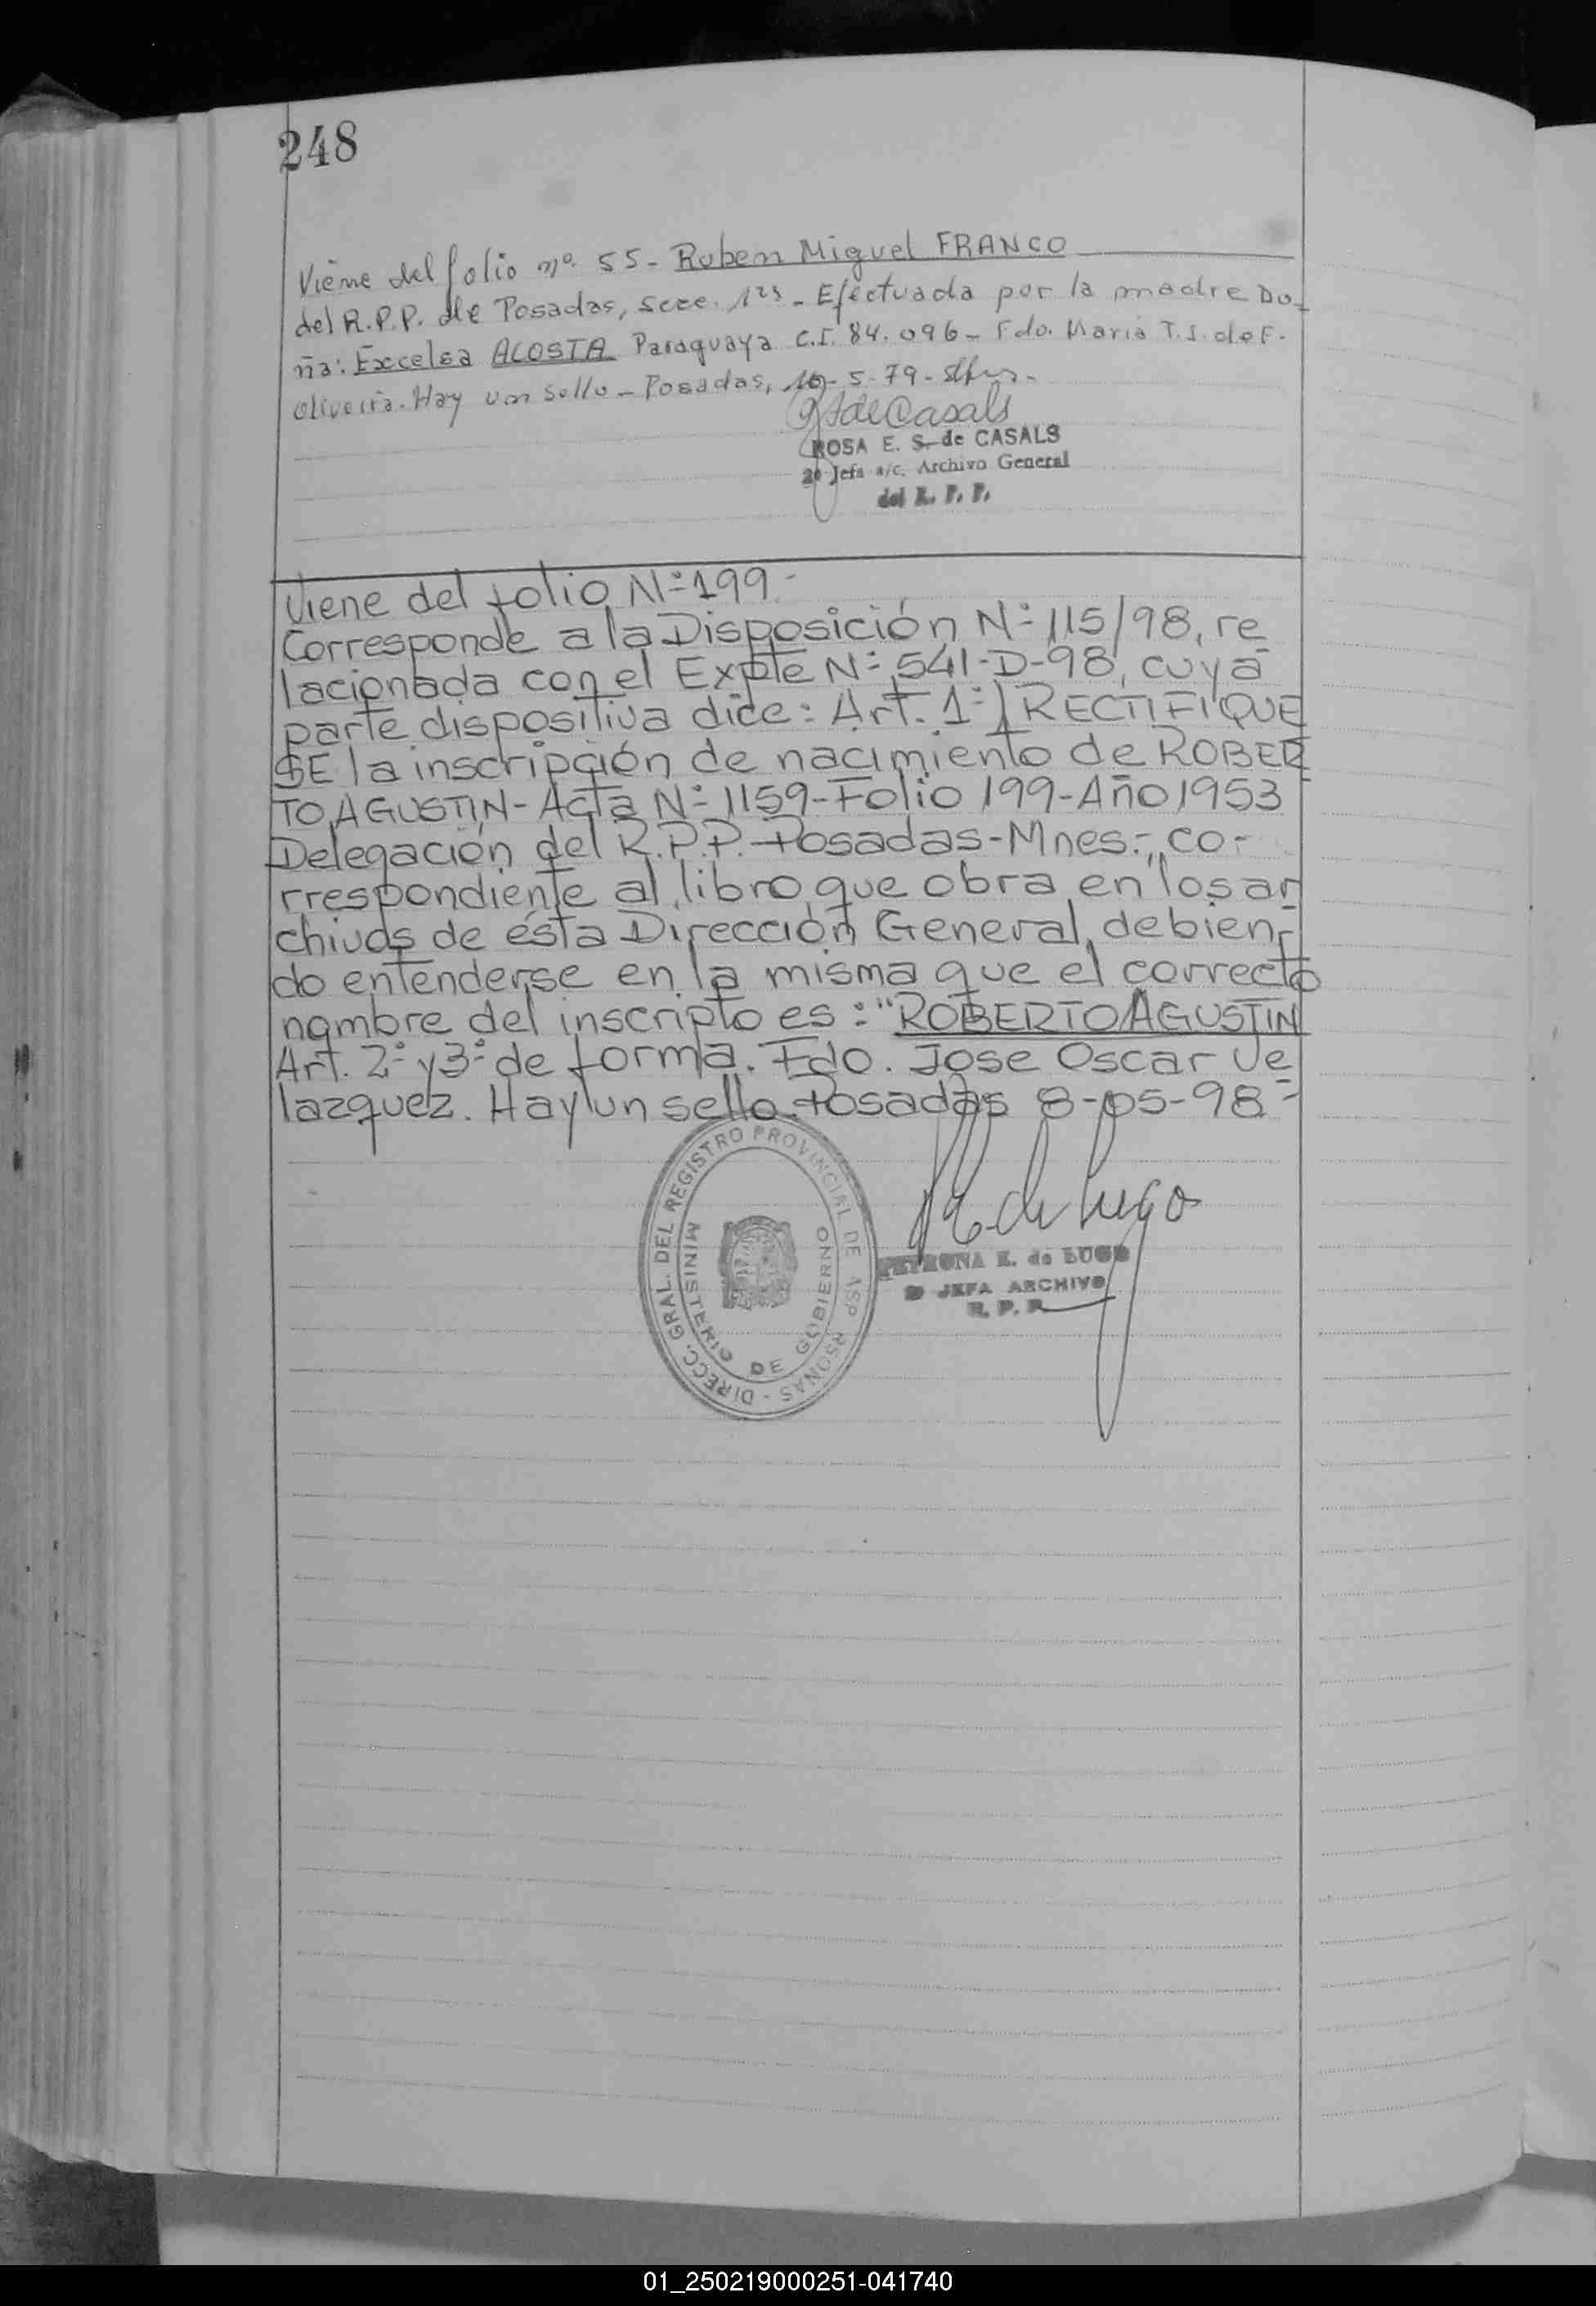 248
Viene del folio nº 55 - Ruben Miguel FRANCO
del R.P.P. de Posadas, secc. 1ra - Efectuada por la madre Do-
ña: Excelsa ACOSTA Paraguaya C.I. 84.096 - Fdo. Maria T.S. de F.
Oliveira. Hay un sello - Posadas, 10-5-79 -
ROSA E. S. de CASALS
2º Jefa a/c. Archivo General
del R. P. P.
Viene del folio Nº 199.-
Corresponde a la Disposición Nº 115/98, re
lacionada con el Expte Nº 541-D-98, cuya
parte dispositiva dice: Art. 1º) RECTIFIQUE
SE la inscripción de nacimiento de ROBER
TO AGUSTIN - Acta Nº 1159 - Folio 199 - Año 1953
Delegación del R.P.P. - Posadas - Mnes.-, co-
rrespondiente al libro que obra en los ar
chivos de ésta Dirección General, debien-
do entenderse en la misma que el correcto
nombre del inscripto es: "ROBERTO AGUSTIN
Art. 2º y 3º de forma. Fdo. Jose Oscar Ve
lazquez. Hay un sello. Posadas 8-05-98 -
DIRECC. GRAL. DEL REGISTRO PROVINCIAL DE LAS PERSONAS -
MINISTERIO DE GOBIERNO
PETRONA E. de LUGO
JEFA ARCHIVO
R. P. P.
01_250219000251-041740